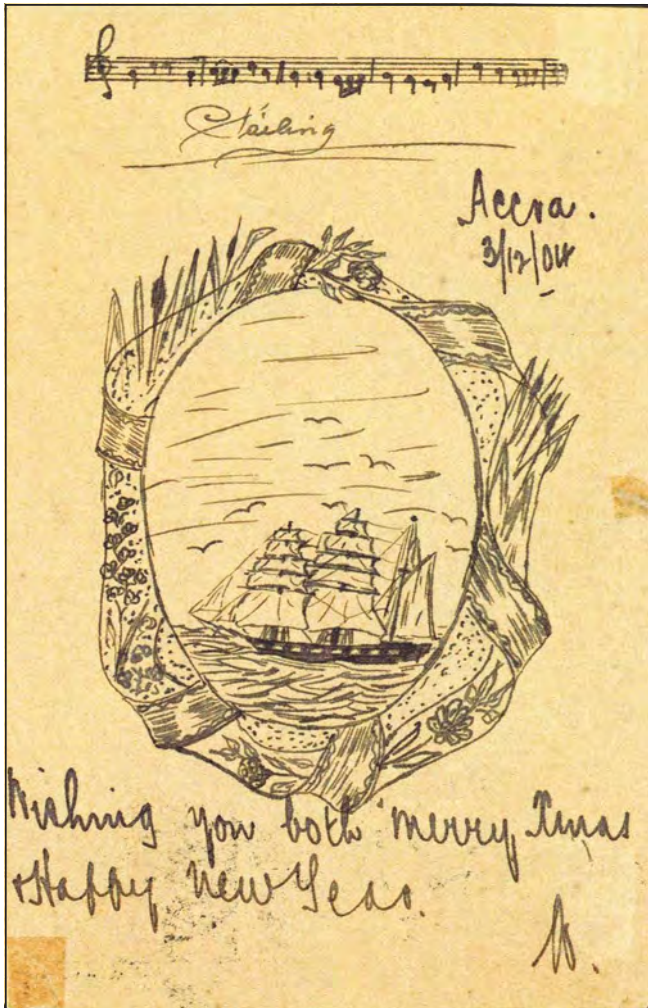 Sailing
Accra.
3/12/04
Wishing you both merry Xmas
+Happy New Year.
W.